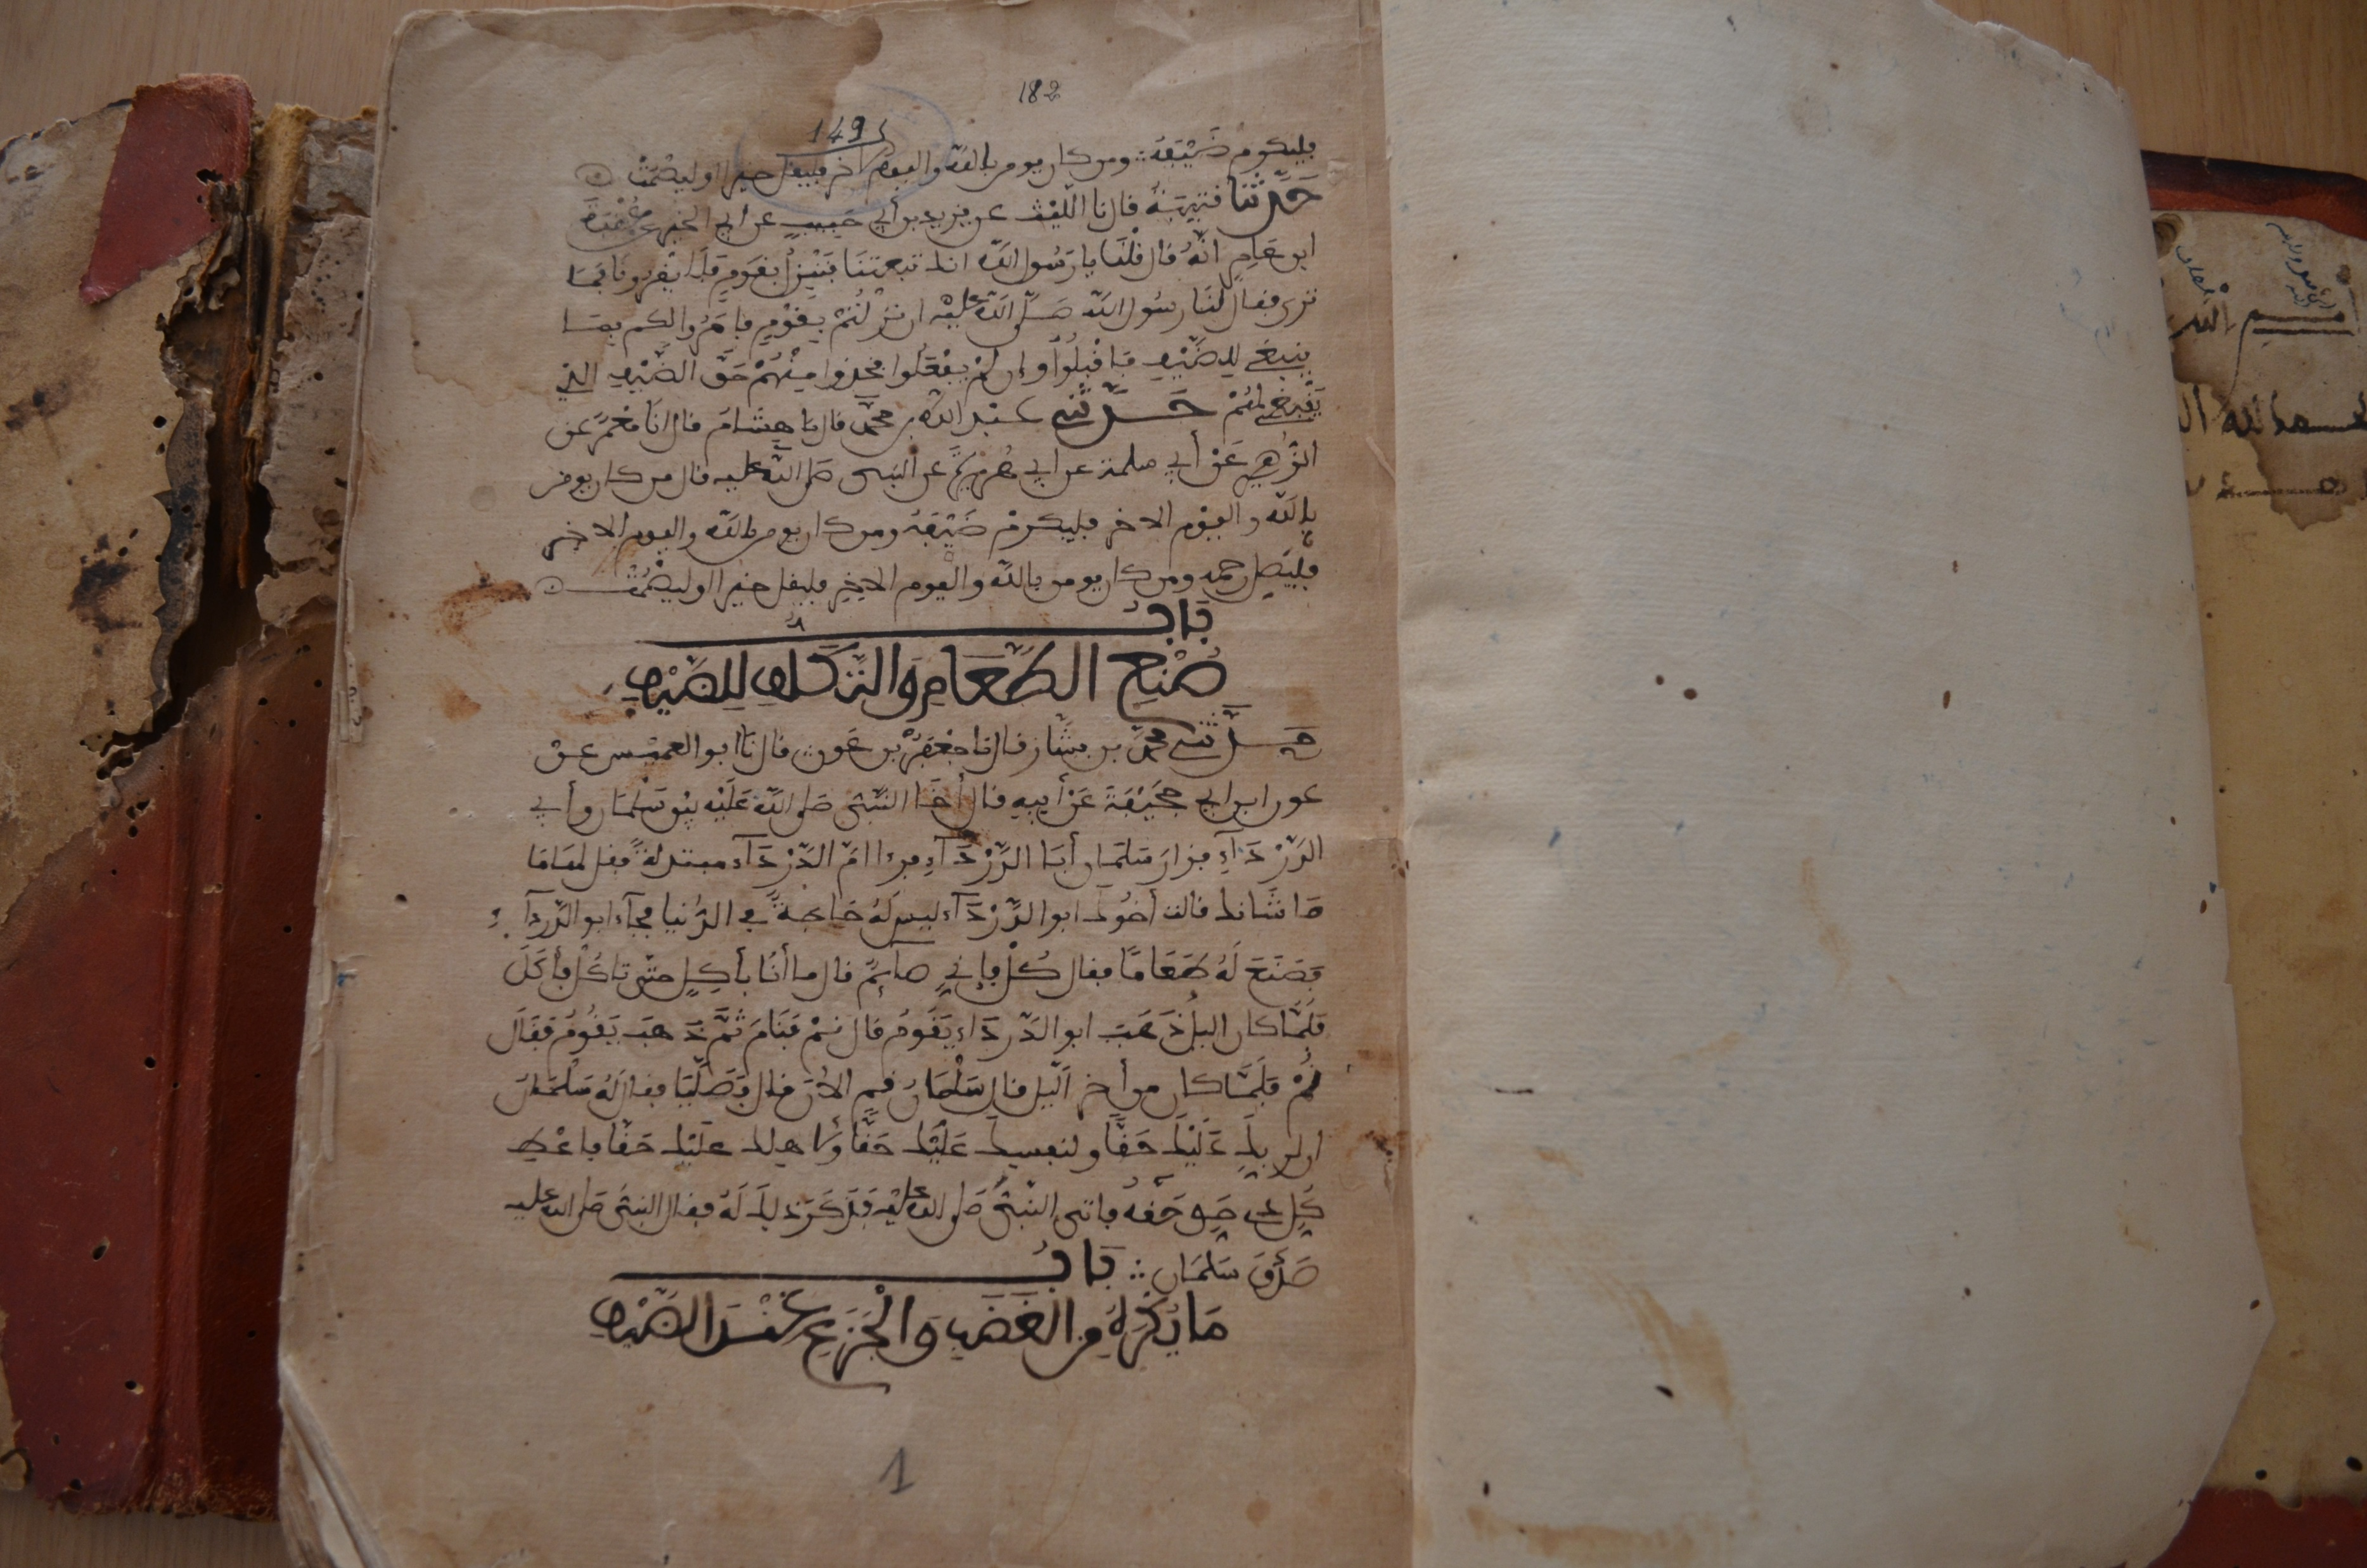 182
1491
فليكرم ضيفه ومن كان يومن بالله واليوم الاخر فليقل خيرا او ليصمت
حَدَّثنا قتيبة قال نا الليث عن يزيد بن أبي حبيب عن ابي الخير عن عقبة
ابن عامر انّه قال قلنا يا رسول الله انك تبعثنا فننزل بقوم فلا يقروننا فما
ترى فقال لنا رسول الله صلى الله عليه ان نزلتم بقوم فامروا لكم بما
ينبغي للضيف فاقبلوا وإن لم يفعلوا فخذوا منهم حق الضيف الذي
ينبغي لهم حدثني عبد الله بن محمد قال نا هشام قال انا معمر عن
الزهري عن أبي سلمة عن ابي هريرة عن النبي صلى الله عليه قال من كان يومن
بالله واليوم الاخر فليكرم ضيفه ومن كان يومن بالله واليوم الاخر
فليصل رحمه ومن كان يومن بالله واليوم الاخر فليقل خيرا او ليصمت
بَابُ
صُنْعِ الطَّعَامِ وَالتَّكَلُّفِ لِلضَّيْفِ
حدثني محمد بن بشار قال نا جعفر بن عون قال نا ابو العميس عن
عون ابن ابي جحيفة عن أبيه قال أخا النبي صلى الله عليه بين سلمان وأبي
الدرداء فزار سلمان أبا الدرداء فرءا امّ الدرداء مبتذلة فقل لها ما
ما شانك قالت أخوك ابو الدرداء ليس له حاجة في الدنيا فجاء ابو الدرداء
فصنع له طعاما فقال كُلْ فإني صائم قال ما أنا بأكل حتى تاكل فأكل
فلمّا كان اليل ذهب ابو الدرداء يقوم قال نم فنام ثم ذهب يقوم فقال
نم فلمّا كان من أخر الّيل قال سلمان قم الان قال فصلّيا فقال له سلمان
ان لربك عليك حقّا ولنفسك عليك حقّا ولاهلك عليك حقّا فاعط
كل ذي حق حقه فاتى النبي صلى الله عليه فذكر ذلك له فقال النبي صلى الله عليه
صدق سلمان بَابُ
مَا يُكْرَهُ مِنَ الغَضَبِ وَالْجَزَعِ عِنْدَ الضَّيْفِ
1